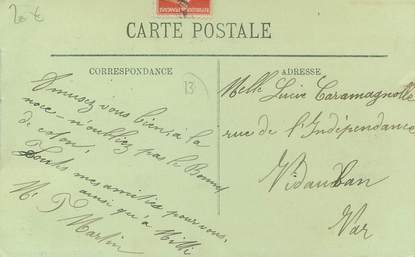 20 €
CARTE POSTALE
CORRESPONDANCE
ADRESSE
13
Amusez vous bien, à la
noce - n'oubliez pas le Bonnet
de coton,
Toutes mes amitiés pour vous,
ainsi qu'à
M. Martin
Melle Lucie Caramagnolle
rue de l'Indépendance
Vidauban
Var